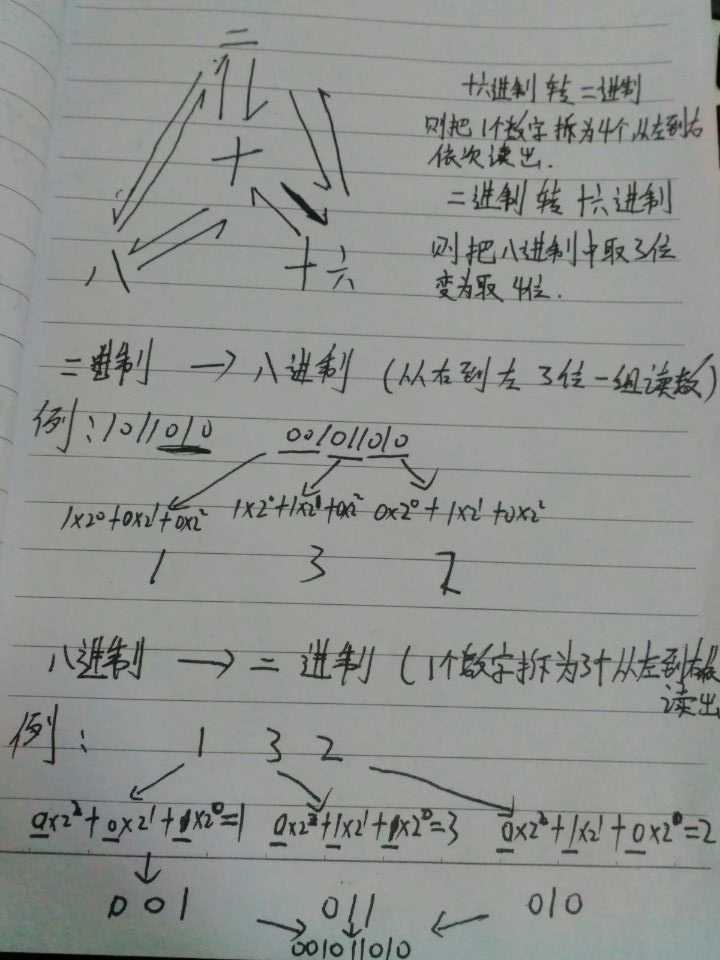 二
十
八
十六
十六进制 转 二进制
则把1个数字拆为4个从左到右
依次读出.
二进制 转 十六进制
则把八进制中取3位
变为取 4位.
二进制 → 八进制 (从右到左 3位一组读数)
例: 1011010 001011010
1x2⁰+0x2¹+0x2² 1x2⁰+1x2¹+0x2² 0x2⁰+1x2¹+0x2²
1 3 2
八进制 → 二进制 (1个数字拆为3个从左到右依
读出
例: 1 3 2
0x2²+0x2¹+1x2⁰=1 0x2²+1x2¹+1x2⁰=3 0x2²+1x2¹+0x2⁰=2
001 011 010
001011010